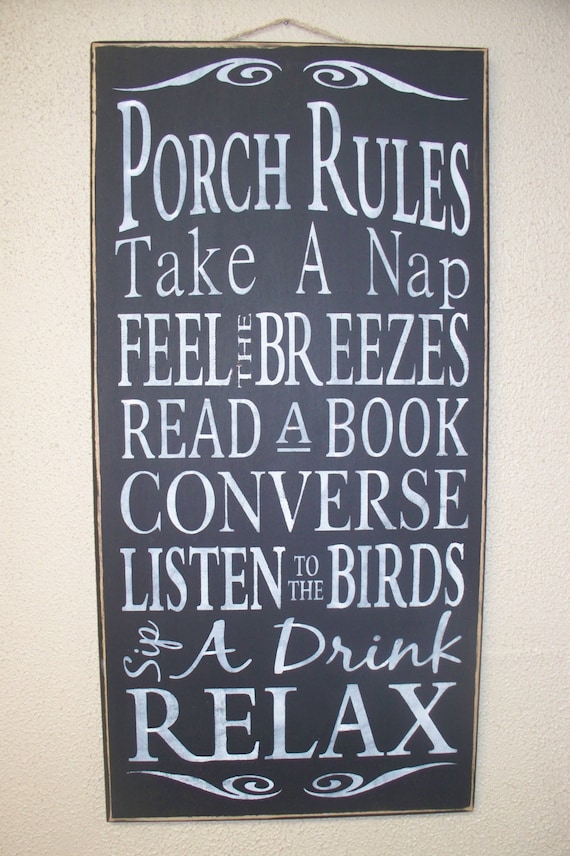 PORCH RULES
Take A Nap
FEEL THE BREEZES
READ A BOOK
CONVERSE
LISTEN TO THE BIRDS
Sip A Drink
RELAX